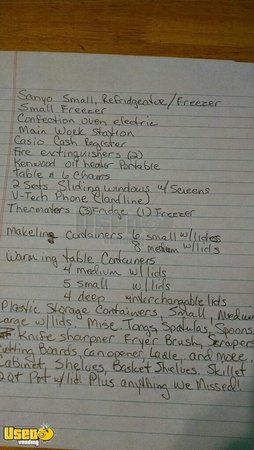 Sanyo Small, Refridgeatoe/Freezer
Small Freezer
Confection oven electric
Main Work Station
Casio Cash Register
Fire extinguishers (2)
Kenwood oil heater Portable
Table & 6 Chairs
2 Sets Sliding windows w/ Screens
V-Tech Phone (Landline)
Thermaters (3) Fridge (1) Freezer
Makeline Containers 6 small w/lides
8 medium w/lids
Warming table Containers
4 medium w/lids
5 small w/lids
4 deep interchangable lids
Plastic Storage Containers, Small, Medium
Large w/lids. Misc Tongs, Spatulas, Spoons
Knife sharpner Fryer Brush, Scrapers
Cutting Boards, can opener, Ladle, and more.
Cabinet, Shelves, Basket Shelves. Skillet
20qt Pot w/lid! Plus anything we Missed!
Used
vending